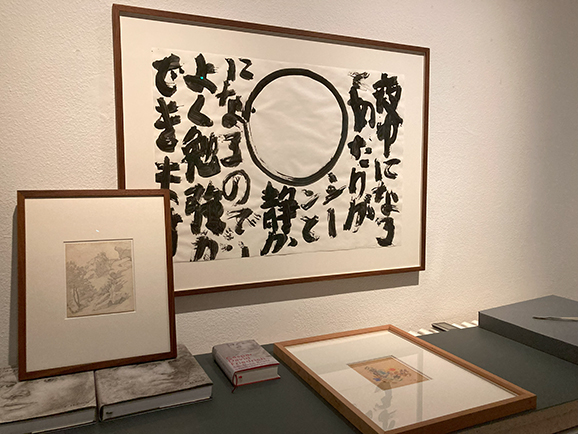 夜中になる
とあたりが
シーンと
静か
になるので
よく勉強が
できます